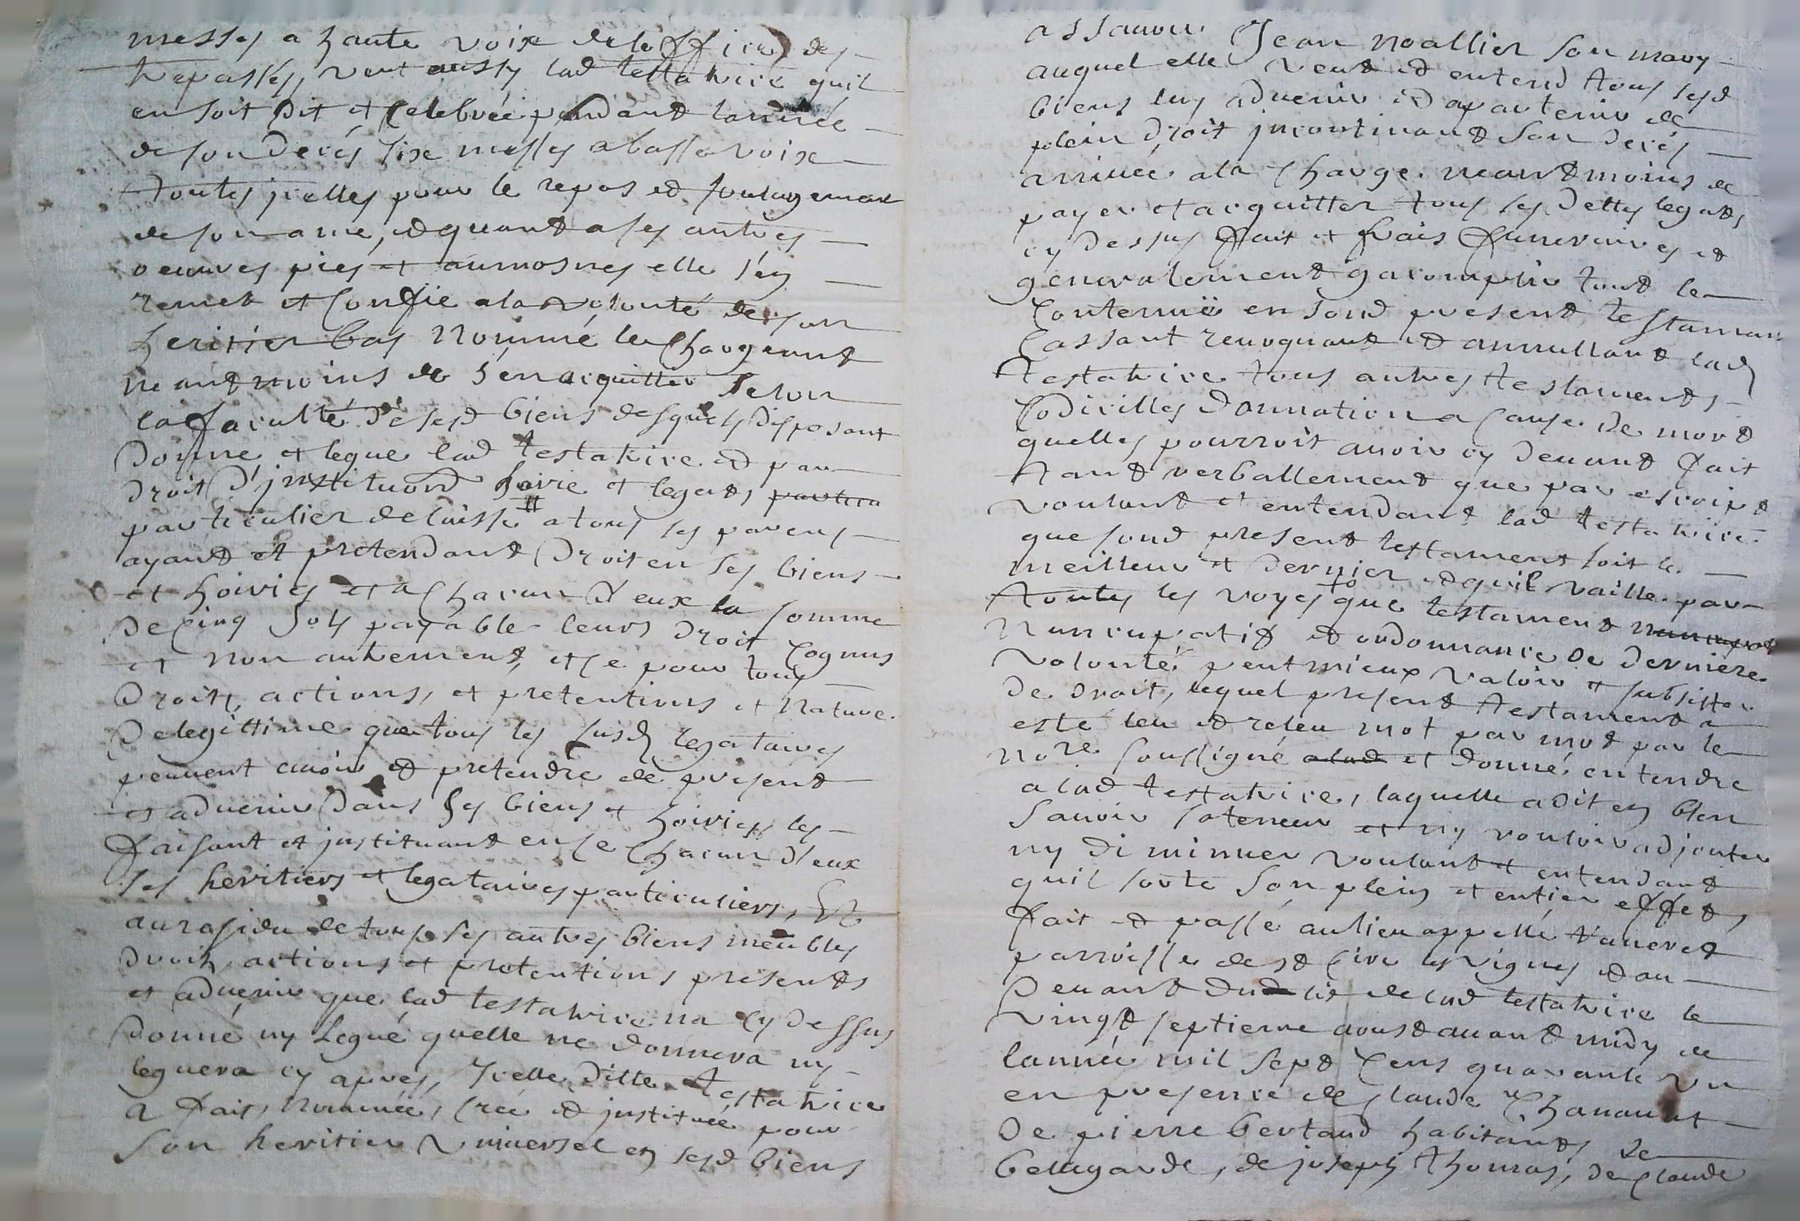 messes a haute voix de loffice des
trepassés, veut aussy lad testatrice quil
en soit dit et celebrée pendant lannée
de son decés six messes a basse voix
toutes jcelles pour le repos et soulagement
de son ame, et quant a ses autres
oeuvres pies et aumosnes elle s'en
remet et confie a la volonté de son
heritier bas nommé le chargeant
neantmoins de s'en acquitter selon
la faculté de sesd biens desquels disposant
donne et legue lad testatrice et par
droit d'jnstitution hoirie et legats partic
particulier delaisse # a tous ses parens
ayant et pretendant droit en ses biens
et hoiries et a chacun d'eux la somme
de cinq sols payable leurs droit cognus
et non autrement, et ce pour tous
droits, actions, et pretentions et nature
de legittime que tous les susd legataires
peuvent avoir et pretendre de present
et advenir dans ses biens et hoiries les
faisant et jnstituant en ce chacun d'eux
ses heritiers et legataires particuliers, Et
au residu de tous ses autres biens meubles
droits, actions et pretentions presents
et advenir que lad testatrice na cy dessus
donné ny legué quelle ne donnera ny
leguera cy apres, Jcelle ditte testatrice
a fait, nommée, créé et jnstituée pour
son heritier universel en sesd biens
assavoir Jean noallier son mary
auquel elle veut et entend tous sesd
biens luy advenir et apartenir de
plein droit jncontinant son decés
arrivée, a la charge neantmoins de
payer et acquitter tous ses dettes legats
cy dessus fait et frais funeraires et
generalement gacomplir tout le
contenue en sond present testament
cassant revoquant et annullant lad
testatrice tous autres testaments
codicilles donnation a cause de mort
quelles pourroit avoir cy devant fait
tant verballement que par escript
voulant et entendant lad testatrice
que sond present testament soit le
meilleur et dernier et quil vaille par
toutes les voyes que testament nuncupat
nuncupatif et ordonnance de derniere
volonté peut mieux valoir et subsister
de droit, lequel present testament a
esté leu et releu mot par mot par le
nore soussigné a lad et donné entendre
a lad testatrice, laquelle a dit en bien
savoir la teneur et ny vouloir adjouter
ny diminuer voulant et entendant
quil sorte son plein et entier effet,
fait et passé au lieu appellé
parroisse de st Cire les vignes et au
devant du lit de lad testatrice le
vingt septieme aoust avant midy de
lannée mil sept cens quarante un
en presence de claude Chanaut
de pierre bertand habitants de
bellegarde, de joseph thomas, de claude